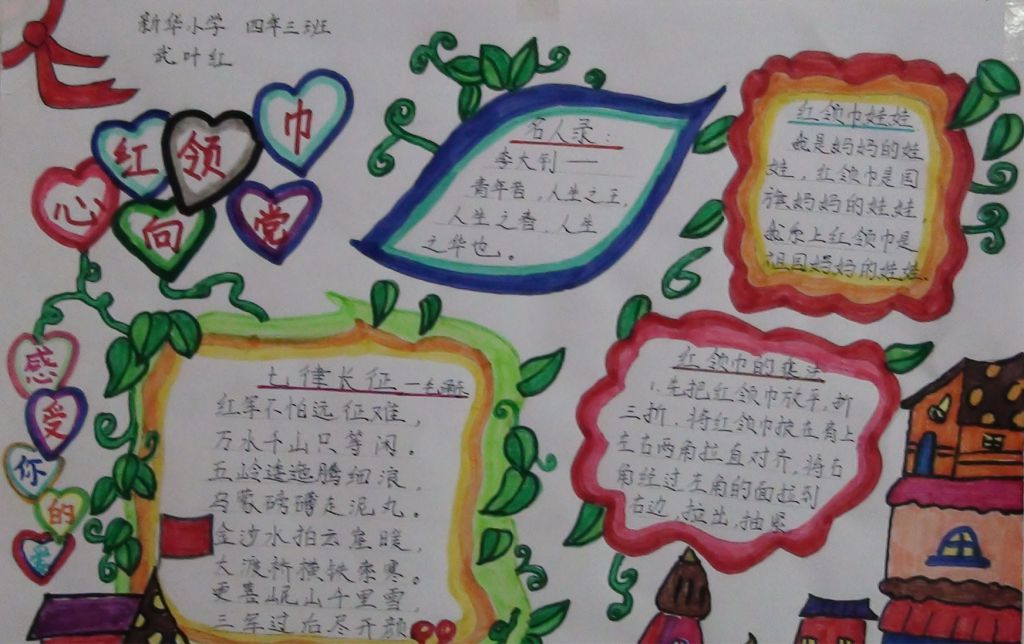 新华小学 四年三班
武叶红
红领巾
心向党
感受你的爱
名人录：
李大钊——
青年者，人生之王，
人生之春，人生
之华也。
红领巾娃娃
我是妈妈的娃
娃，红领巾是国
旗妈妈的娃娃，
我系上红领巾是
祖国妈妈的娃娃
七律长征—毛泽东
红军不怕远征难，
万水千山只等闲。
五岭逶迤腾细浪，
乌蒙磅礴走泥丸。
金沙水拍云崖暖，
大渡桥横铁索寒。
更喜岷山千里雪，
三军过后尽开颜
红领巾的系法
1.先把红领巾放平，折
三折，将红领巾披在肩上
左右两角拉直对齐，将右
角经过左角的面拉到
右边，拉出，抽紧